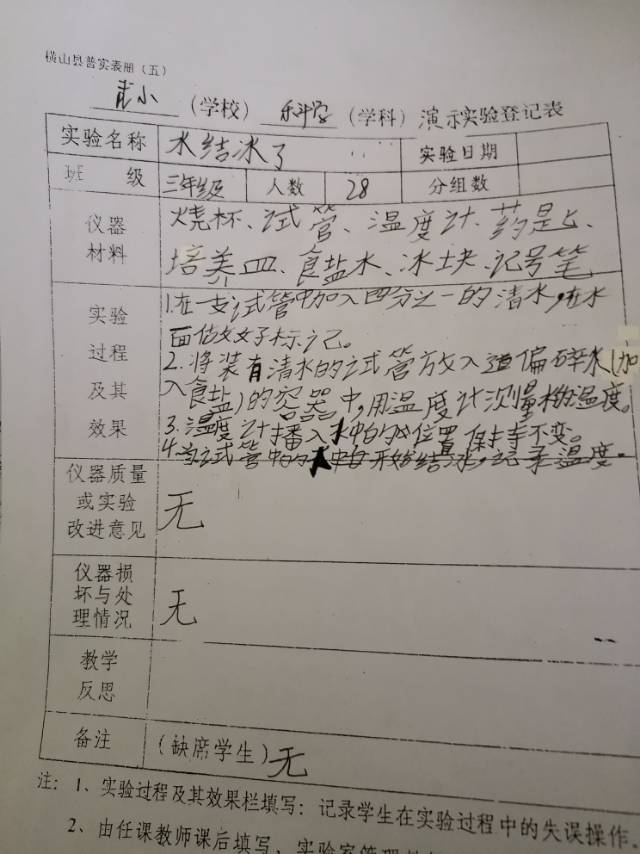 横山县普实表册（五）
青小（学校）科学（学科）演示实验登记表
实验名称 水结冰了 实验日期
班级 三年级 人数 28 分组数
仪器材料 烧杯、试管、温度计、药是匕、
培养皿、食盐水、冰块、记号笔
实验过程及其效果 1.在一支试管中加入四分之一的清水，在水
面做好标记。
2.将装有清水的试管放入 碎冰(加
入食盐)的容器中，用温度计测量 温度。
3.温度计插入水中的 位置保持不变。
4.当试管中的水 开始结冰，记录温度。
仪器质量或实验改进意见 无
仪器损坏与处理情况 无
教学反思
备注 （缺席学生）无
注：1、实验过程及其效果栏填写：记录学生在实验过程中的失误操作.
2、由任课教师课后填写，实验室管理